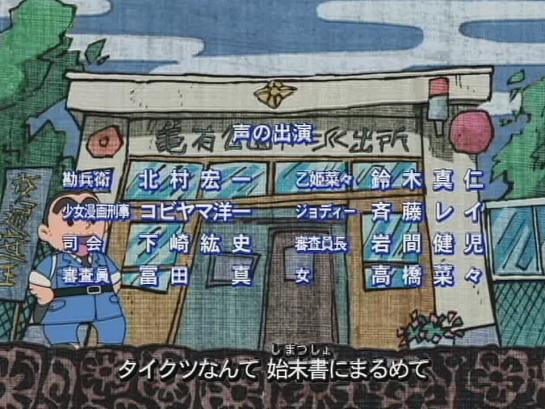 声の出演
亀有公園前派出所
勘兵衛 北村宏一 乙姫菜々 鈴木真仁
少女漫画刑事 コビヤマ洋一 ジョディー 斉藤レイ
司会 下崎紘史 審査員長 岩間健児
審査員 冨田真 女 高橋菜々
しまつしょ
タイクツなんて 始末書にまるめて